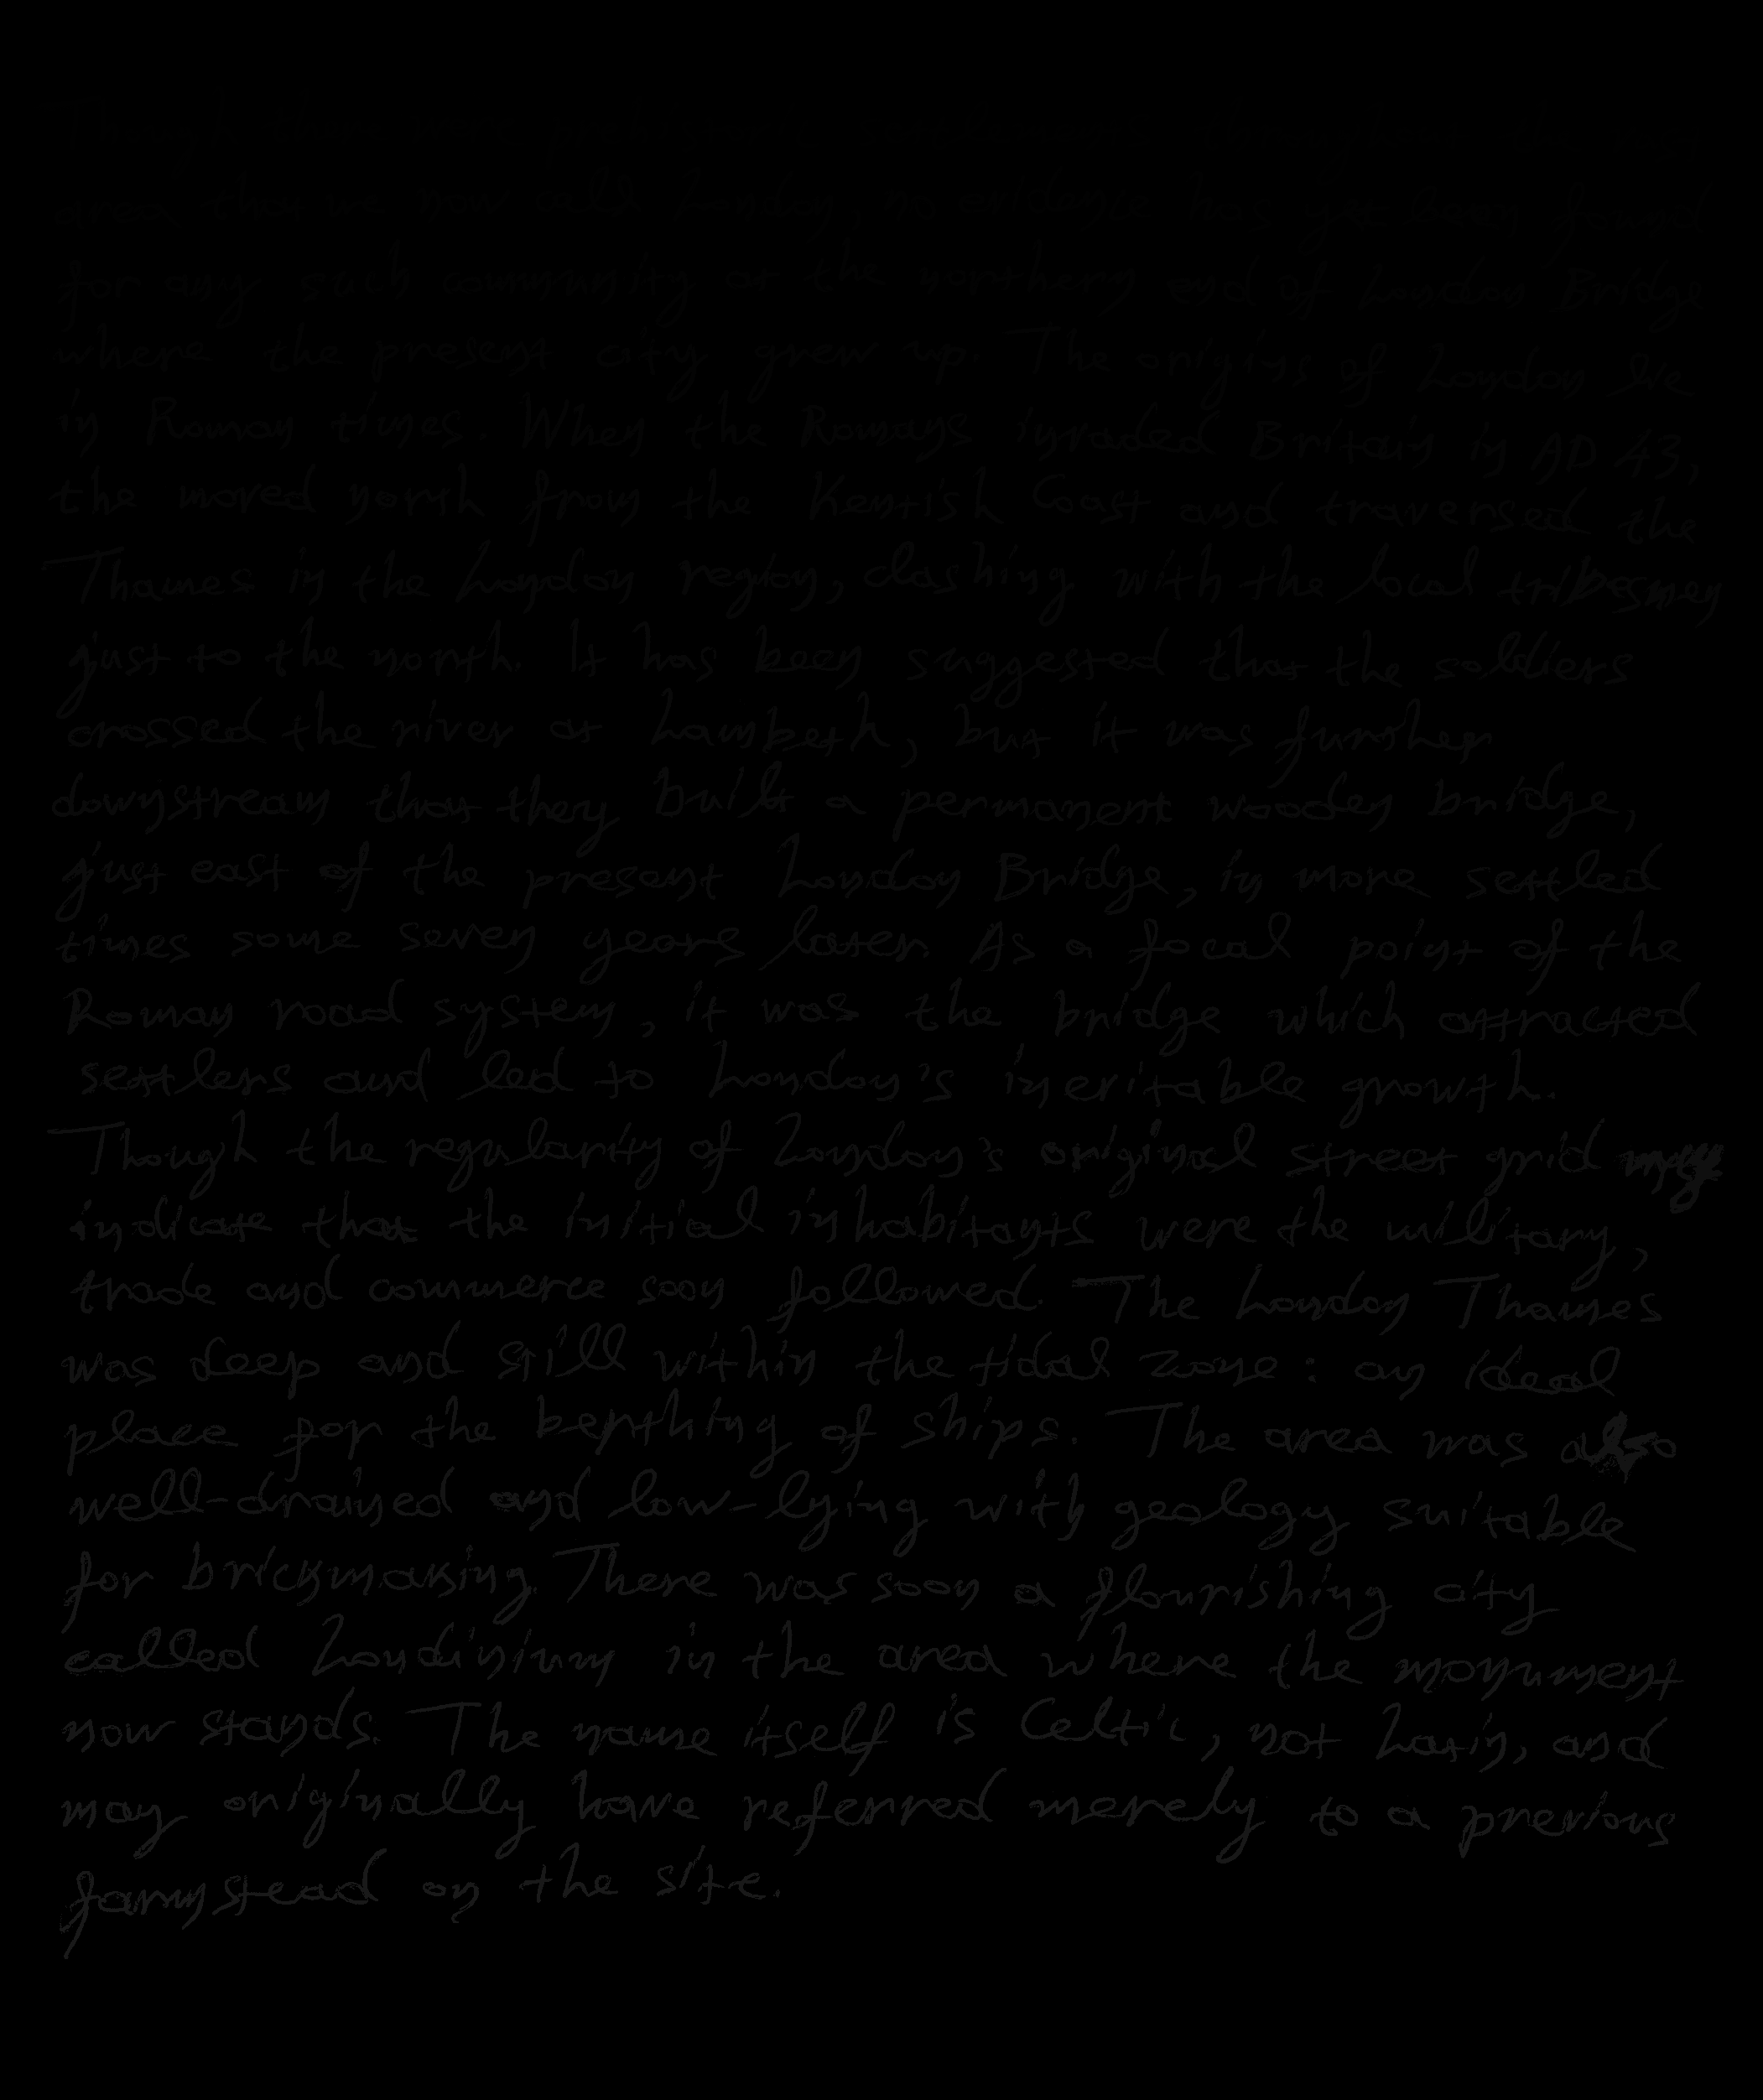 area that we now call London, no evidence has yet been found
for any such community at the northern end of London Bridge
where the present city grew up. The origins of London lie
in Roman times. When the Romans invaded Britain in AD 43,
the moved north from the Kentish Coast and traversed the
Thames in the London region, clashing with the local tribesmen
just to the north. It has been suggested that the soldiers
crossed the river at Lambeth, but it was further
downstream that they built a permanent wooden bridge,
just east of the present London Bridge, in more settled
times some seven years later. As a focal point of the
Roman road system, it was the bridge which attracted
settlers and led to London's ineritable growth.
Though the regularity of London's original street grid may
indicate that the initial inhabitants were the military,
trade and commerce soon followed. The London Thames
was deep and still within the tidal zone: an ideal
place for the berthing of ships. The area was also
well-drained and low-lying with geology suitable
for brickmaking. There was soon a flourishing city
called Londinium in the area where the monument
now stands. The name itself is Celtic, not Latin, and
may originally have referred merely to a previous
farmstead on the site.